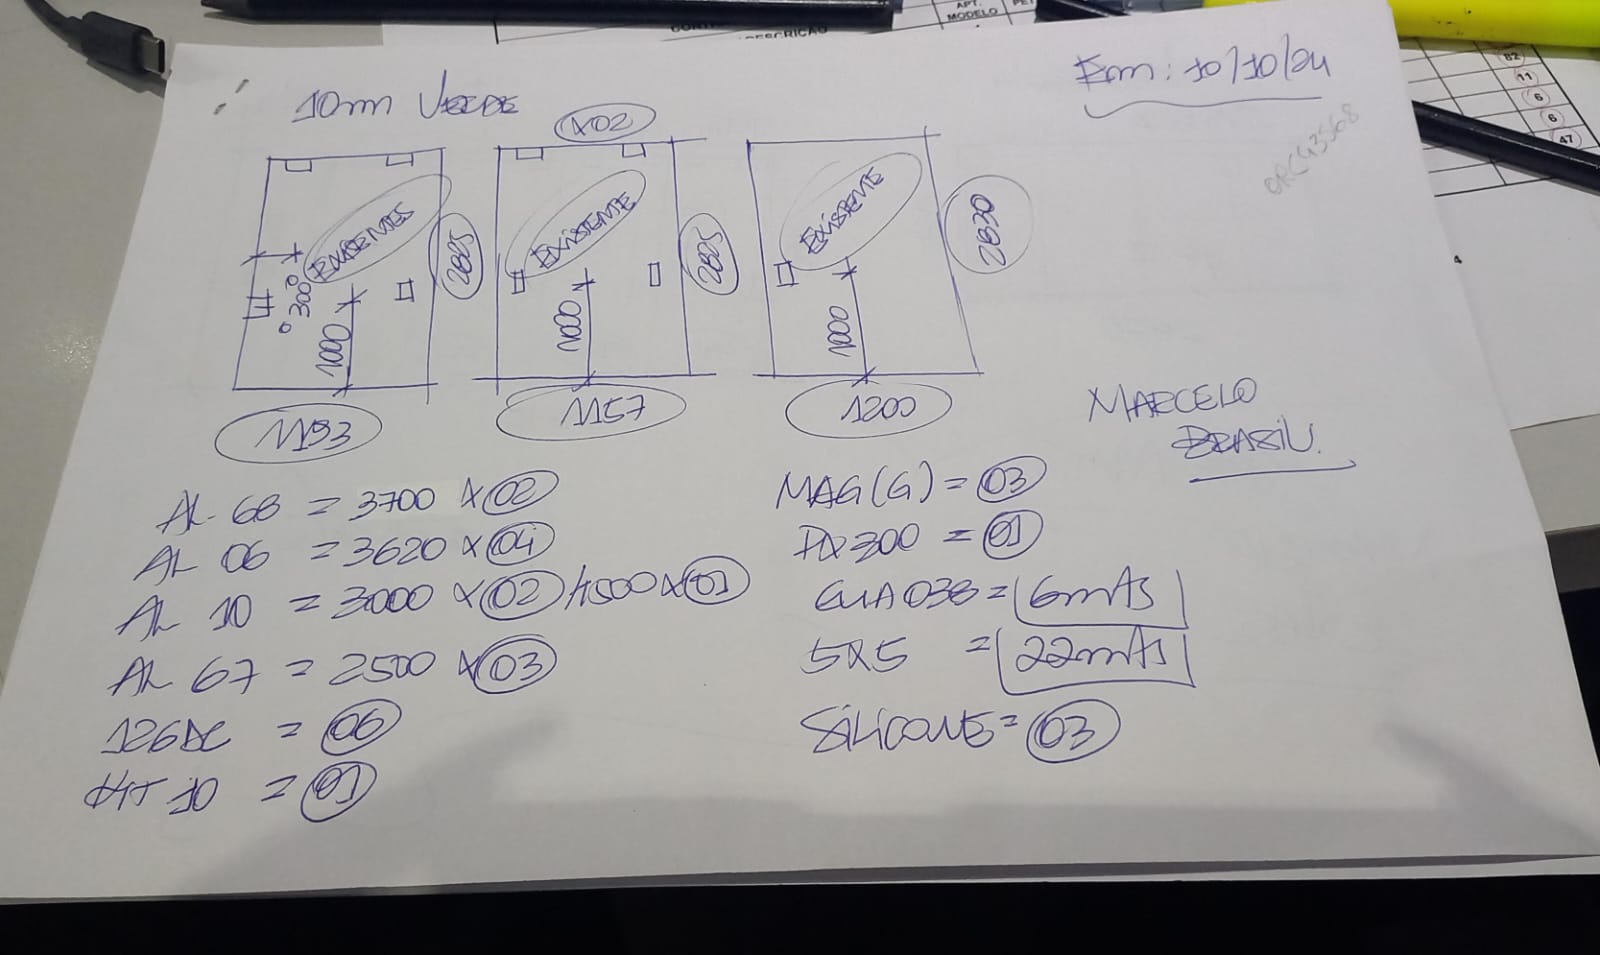 CONT
DESCRIÇÃO
APT.
MODELO
82
11
6
6
47
Em: 10/10/24
ORC43568
10mm VERDE
x02
EXISTENTES
2885
300
1000
1193
EXISTENTE
2885
1000
1157
EXISTENTE
2830
1000
1200
MARCELO
BRASIL.
AL 68 = 3700 x 02
AL 06 = 3620 x 04
AL 10 = 3000 x 02 / 4500 x 01
AL 67 = 2500 x 03
126DC = 06
KIT 10 = 01
MAG(G) = 03
PX300 = 01
GUA038 = 6mts
5x5 = 22mts
SILICONE = 03